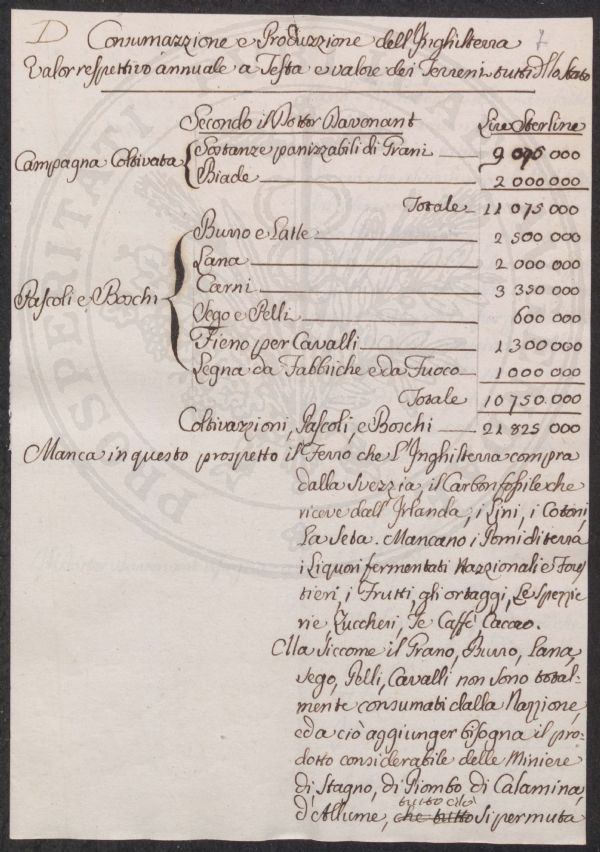 D Consumazzione e Produzzione dell'Inghilterra 7
Valor respettivo annuale a Testa e valore dei Terreni tutti dllo Stato
Secondo il Dottor Davonant Lire Sterline
Campagna Coltivata
Sostanze panizzabili di Grani 9 075 000
Biade 2 000 000
Totale 11 075 000
Pascoli e Boschi
Burro e Latte 2 500 000
Lana 2 000 000
Carni 3 350 000
Sego e Pelli 600 000
Fieno per Cavalli 1 300 000
Legna da Fabbriche e da Fuoco 1 000 000
Totale 10 750 000
Coltivazzioni, Pascoli, e Boschi 21 825 000
Manca in questo prospetto il Ferro che l'Inghilterra compra
dalla Svezzia, il Carbon fossile che
riceve dall'Irlanda; i Lini, i Cotoni,
La Seta. Mancano i Pomi di terra
i Liquori fermentati Nazzionali e Fores
tieri, i Frutti, gli ortaggi, Le Spezzie
rie Zuccheri, Te Caffè Cacao.
Ma siccome il Grano, Burro, Lana,
Sego, Pelli, Cavalli non sono total=
mente consumati dalla Nazzione,
e da ciò aggiunger bisogna il pro=
dotto considerabile delle Miniere
di Stagno, di Piombo di Calamina,
tutto ciò
d'Allume, che tutto si permuta
PROSPERITATI